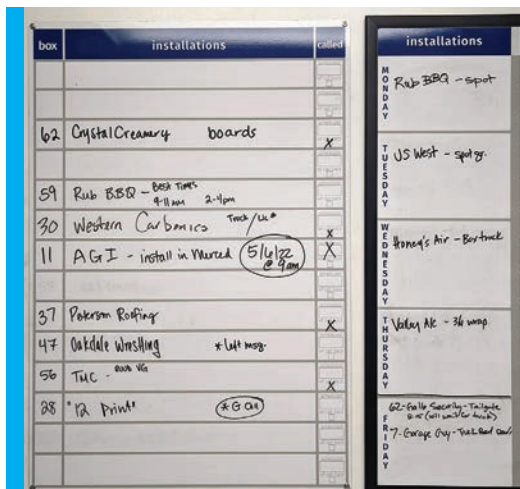 box installations called
62 Crystal Creamery boards X
59 Rub BBQ - Best Times
9-11am 2-4pm
30 Western Carbonics Truck/Lic# X
11 AGI - install in Merced 5/6/22 X
@ 9am
37 Peterson Roofing X
47 Oakdale Wrestling * left msg.
56 TMC - X
28 "12 Print" *
installations
MONDAY
Rub BBQ - spot
TUESDAY
US West - spot
WEDNESDAY
Honey's Air - Box truck
THURSDAY
Valley Ac - 3/4 wrap
FRIDAY
62- Gallo Security - Tailgate
(will wait for truck)
7- Garage Guy - Truck Bed